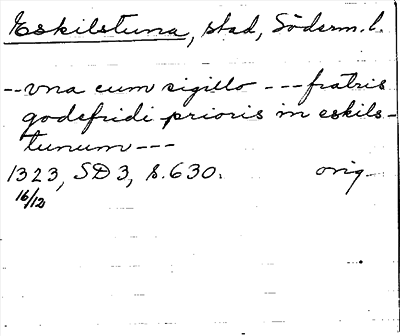 Eskilstuna, stad, Söderm. l.
-- vna cum sigillo --- fratris
godefridi prioris in eskils-
tunum ---
1323, SD 3, s. 630. orig
16/12